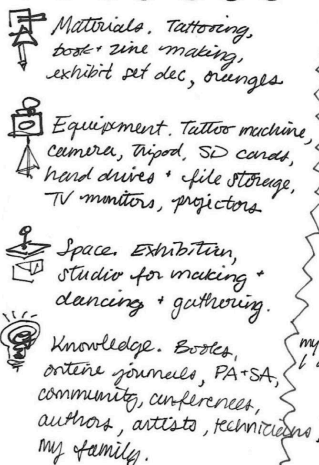 Materials. Tattooing,
book + zine making,
exhibit set dec, oranges
Equipment. Tattoo machine,
camera, tripod, SD cards,
hard drives + file storage,
TV monitors, projectors
Space. Exhibition,
studio for making +
dancing + gathering.
Knowledge. Books,
online journals, PA+SA,
community, conferences,
authors, artists, technicians,
my family.
my